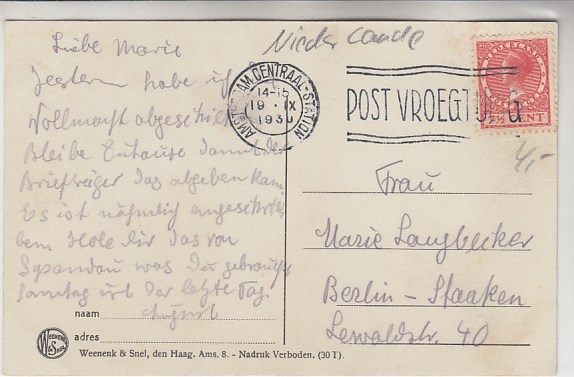 Liebe Marie
Gestern habe ich
Vollmacht abgeschickt
Bleibe Zuhause damit der
Briefträger das abgeben kann
Es ist nähmlich eingeschrieben
Hole dir das von
Spandau was du gebrauchst
Samstag ist der letzte Tag.
August
naam
adres
Niederlande
AMSTERDAM CENTRAAL-STATION
14-15
19 IX
1930
POST VROEGTIJDIG
NEDERLAND
7½ CENT
4,-
Frau
Marie Langbecker
Berlin - Staaken
Lewaldstr. 40
WEENENK & SNEL
Weenenk & Snel, den Haag. Ams. 8. - Nadruk Verboden. (30 T).